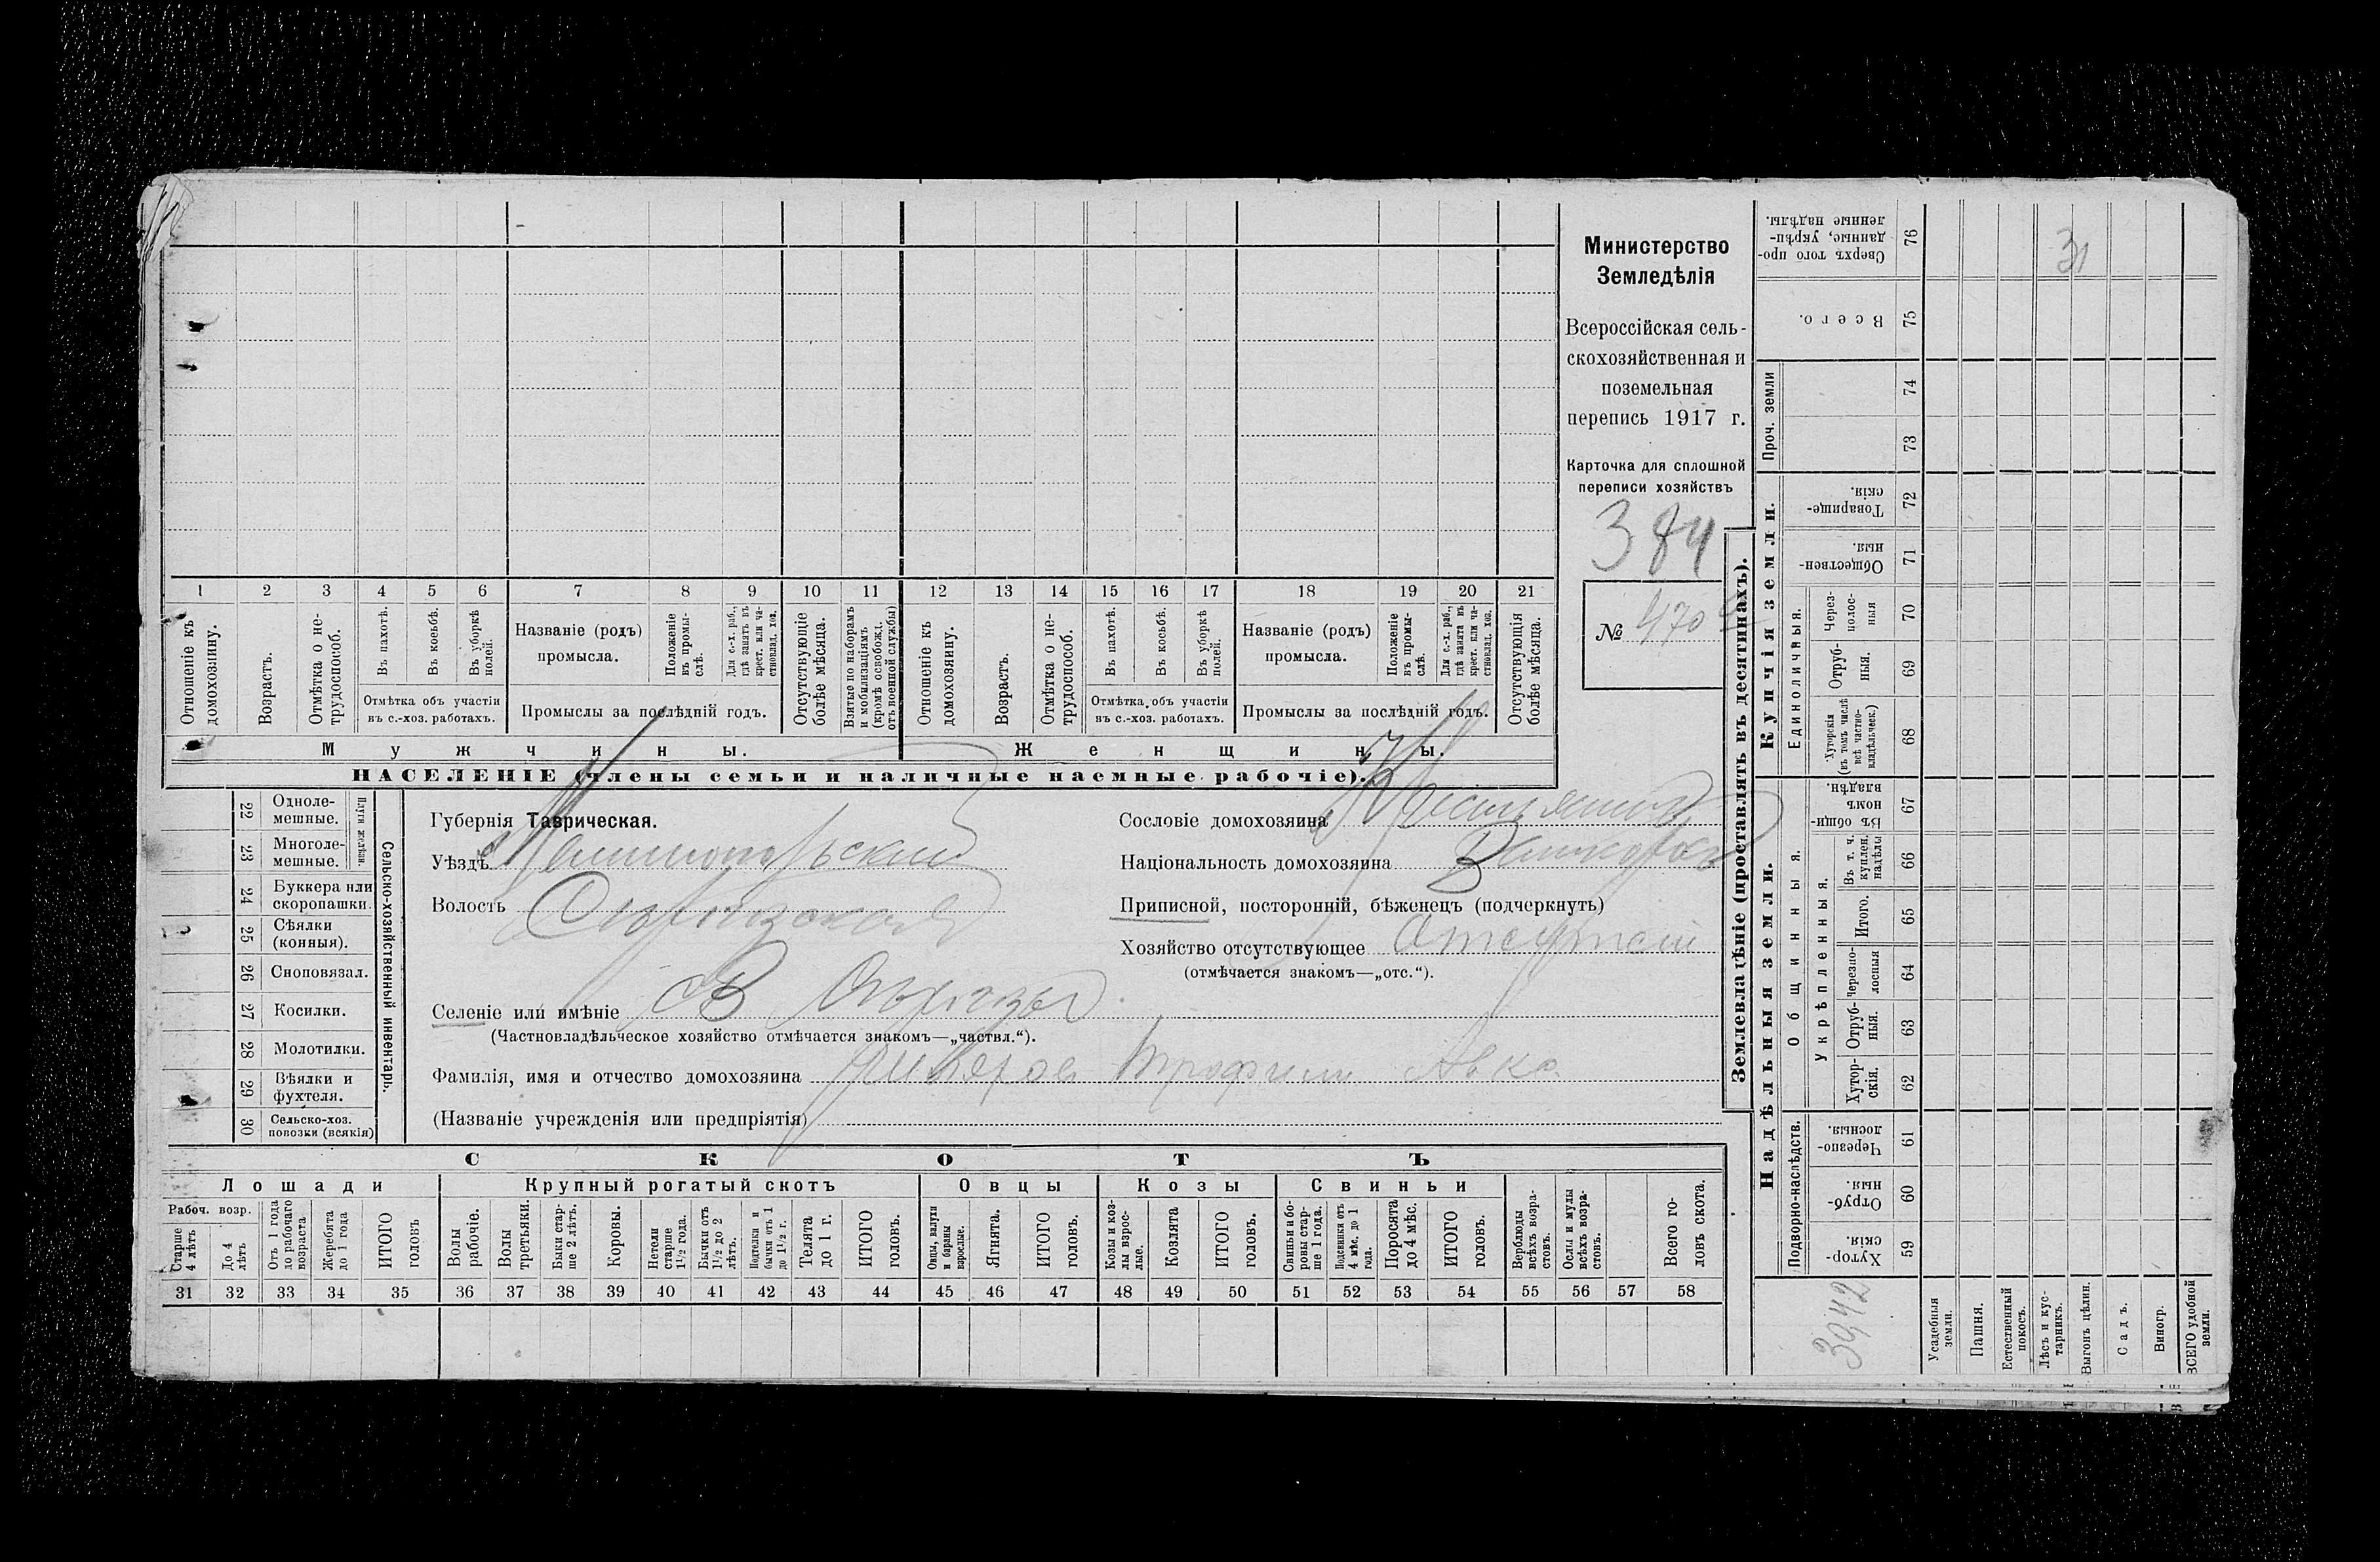 Министерство
Земледѣлія
Всероссійская сель-
скохозяйственная и
поземельная
перепись 1917 г.
Карточка для сплошной
переписи хозяйствъ
384
№ 470
1 2 3 4 5 6 7 8 9 10 11 12 13 14 15 16 17 18 19 20 21
Отношеніе къ домохозяину.
Возрастъ.
Отмѣтка о не-трудоспособ.
Въ пахотѣ.
Въ косьбѣ.
Въ уборкѣ полей.
Отмѣтка объ участіи
въ с.-хоз. работахъ.
Названіе (родъ)
промысла.
Положеніе въ промы-слѣ.
Для с.-х. раб., гдѣ занятъ въ крест. или ча-стновлад. хоз.
Промыслы за послѣдній годъ.
Отсутствующіе болѣе мѣсяца.
Взятые по наборамъ и мобилизаціямъ (кромѣ освобожд. отъ военной службы)
Отношеніе къ домохозяину.
Возрастъ.
Отмѣтка о не-трудоспособ.
Въ пахотѣ.
Въ косьбѣ.
Въ уборкѣ полей.
Отмѣтка объ участіи
въ с.-хоз. работахъ.
Названіе (родъ)
промысла.
Положеніе въ промы-слѣ.
Для с.-х. раб., гдѣ занята въ крест. или ча-стновлад. хоз.
Промыслы за послѣдній годъ.
Отсутствующія болѣе мѣсяца.
Мужчины. Женщины.
НАСЕЛЕНІЕ (члены семьи и наличные наемные рабочіе).
Сельско-хозяйственный инвентарь.
Плуги желѣзн.
22 Одноле-мешные.
23 Многоле-мешные.
24 Буккера или скоропашки.
25 Сѣялки (конныя).
26 Сноповязал.
27 Косилки.
28 Молотилки.
29 Вѣялки и фухтеля.
30 Сельско-хоз. повозки (всякія)
Губернія Таврическая.
Уѣздъ
Волость
Селеніе или имѣніе
(Частновладѣльческое хозяйство отмѣчается знакомъ—„частвл.“).
Фамилія, имя и отчество домохозяина Трофим
(Названіе учрежденія или предпріятія)
Сословіе домохозяина
Національность домохозяина
Приписной, посторонній, бѣженецъ (подчеркнуть)
Хозяйство отсутствующее
(отмѣчается знакомъ—„отс.“).
СКОТЪ
Лошади Крупный рогатый скотъ Овцы Козы Свиньи
Рабоч. возр.
Старше 4 лѣтъ
До 4 лѣтъ
Отъ 1 года до рабочаго возраста
Жеребята до 1 года
ИТОГО головъ
Волы рабочіе.
Волы третьяки.
Быки стар-ше 2 лѣтъ.
Коровы.
Нетели старше 1½ года.
Бычки отъ 1½ до 2 лѣтъ.
Подтелки и бычки отъ 1 до 1½ г.
Телята до 1 г.
ИТОГО головъ.
Овцы, валухи и бараны взрослые.
Ягнята.
ИТОГО головъ.
Козы и коз-лы взрос-лые.
Козлята
ИТОГО головъ.
Свиньи и бо-ровы стар-ше 1 года.
Подсвинки отъ 4 мѣс. до 1 года.
Поросята до 4 мѣс.
ИТОГО головъ.
Верблюды всѣхъ возра-стовъ.
Ослы и мулы всѣхъ возра-стовъ.
Всего го-ловъ скота.
31 32 33 34 35 36 37 38 39 40 41 42 43 44 45 46 47 48 49 50 51 52 53 54 55 56 57 58
Землевладѣніе (проставлять въ десятинахъ).
Сверхъ того про-данные, укрѣп-ленные надѣлы. 76
31
Всего. 75
Проч. земли 74
73
Купчія земли.
Товарище-скія. 72
Обществен-ныя. 71
Единоличныя.
Через-полос-ныя 70
Отруб-ныя. 69
Хуторскія (въ томъ числѣ всѣ частно-владѣльческ.) 68
Надѣльныя земли.
Общинныя.
Въ общи-номъ владѣн. 67
Укрѣпленныя.
Въ т. ч. куплен. надѣлы 66
Итого. 65
Черезпо-лосныя 64
Отруб-ныя. 63
Хутор-скія. 62
Подворно-наслѣдств.
Черезпо-лосныя. 61
Отруб-ныя. 60
Хутор-скія. 59
3942
Усадебныя земли.
Пашня.
Естественный покосъ.
Лѣсъ и кус-тарникъ.
Выгонъ цѣлин.
Садъ.
Виногр.
ВСЕГО удобной земли.